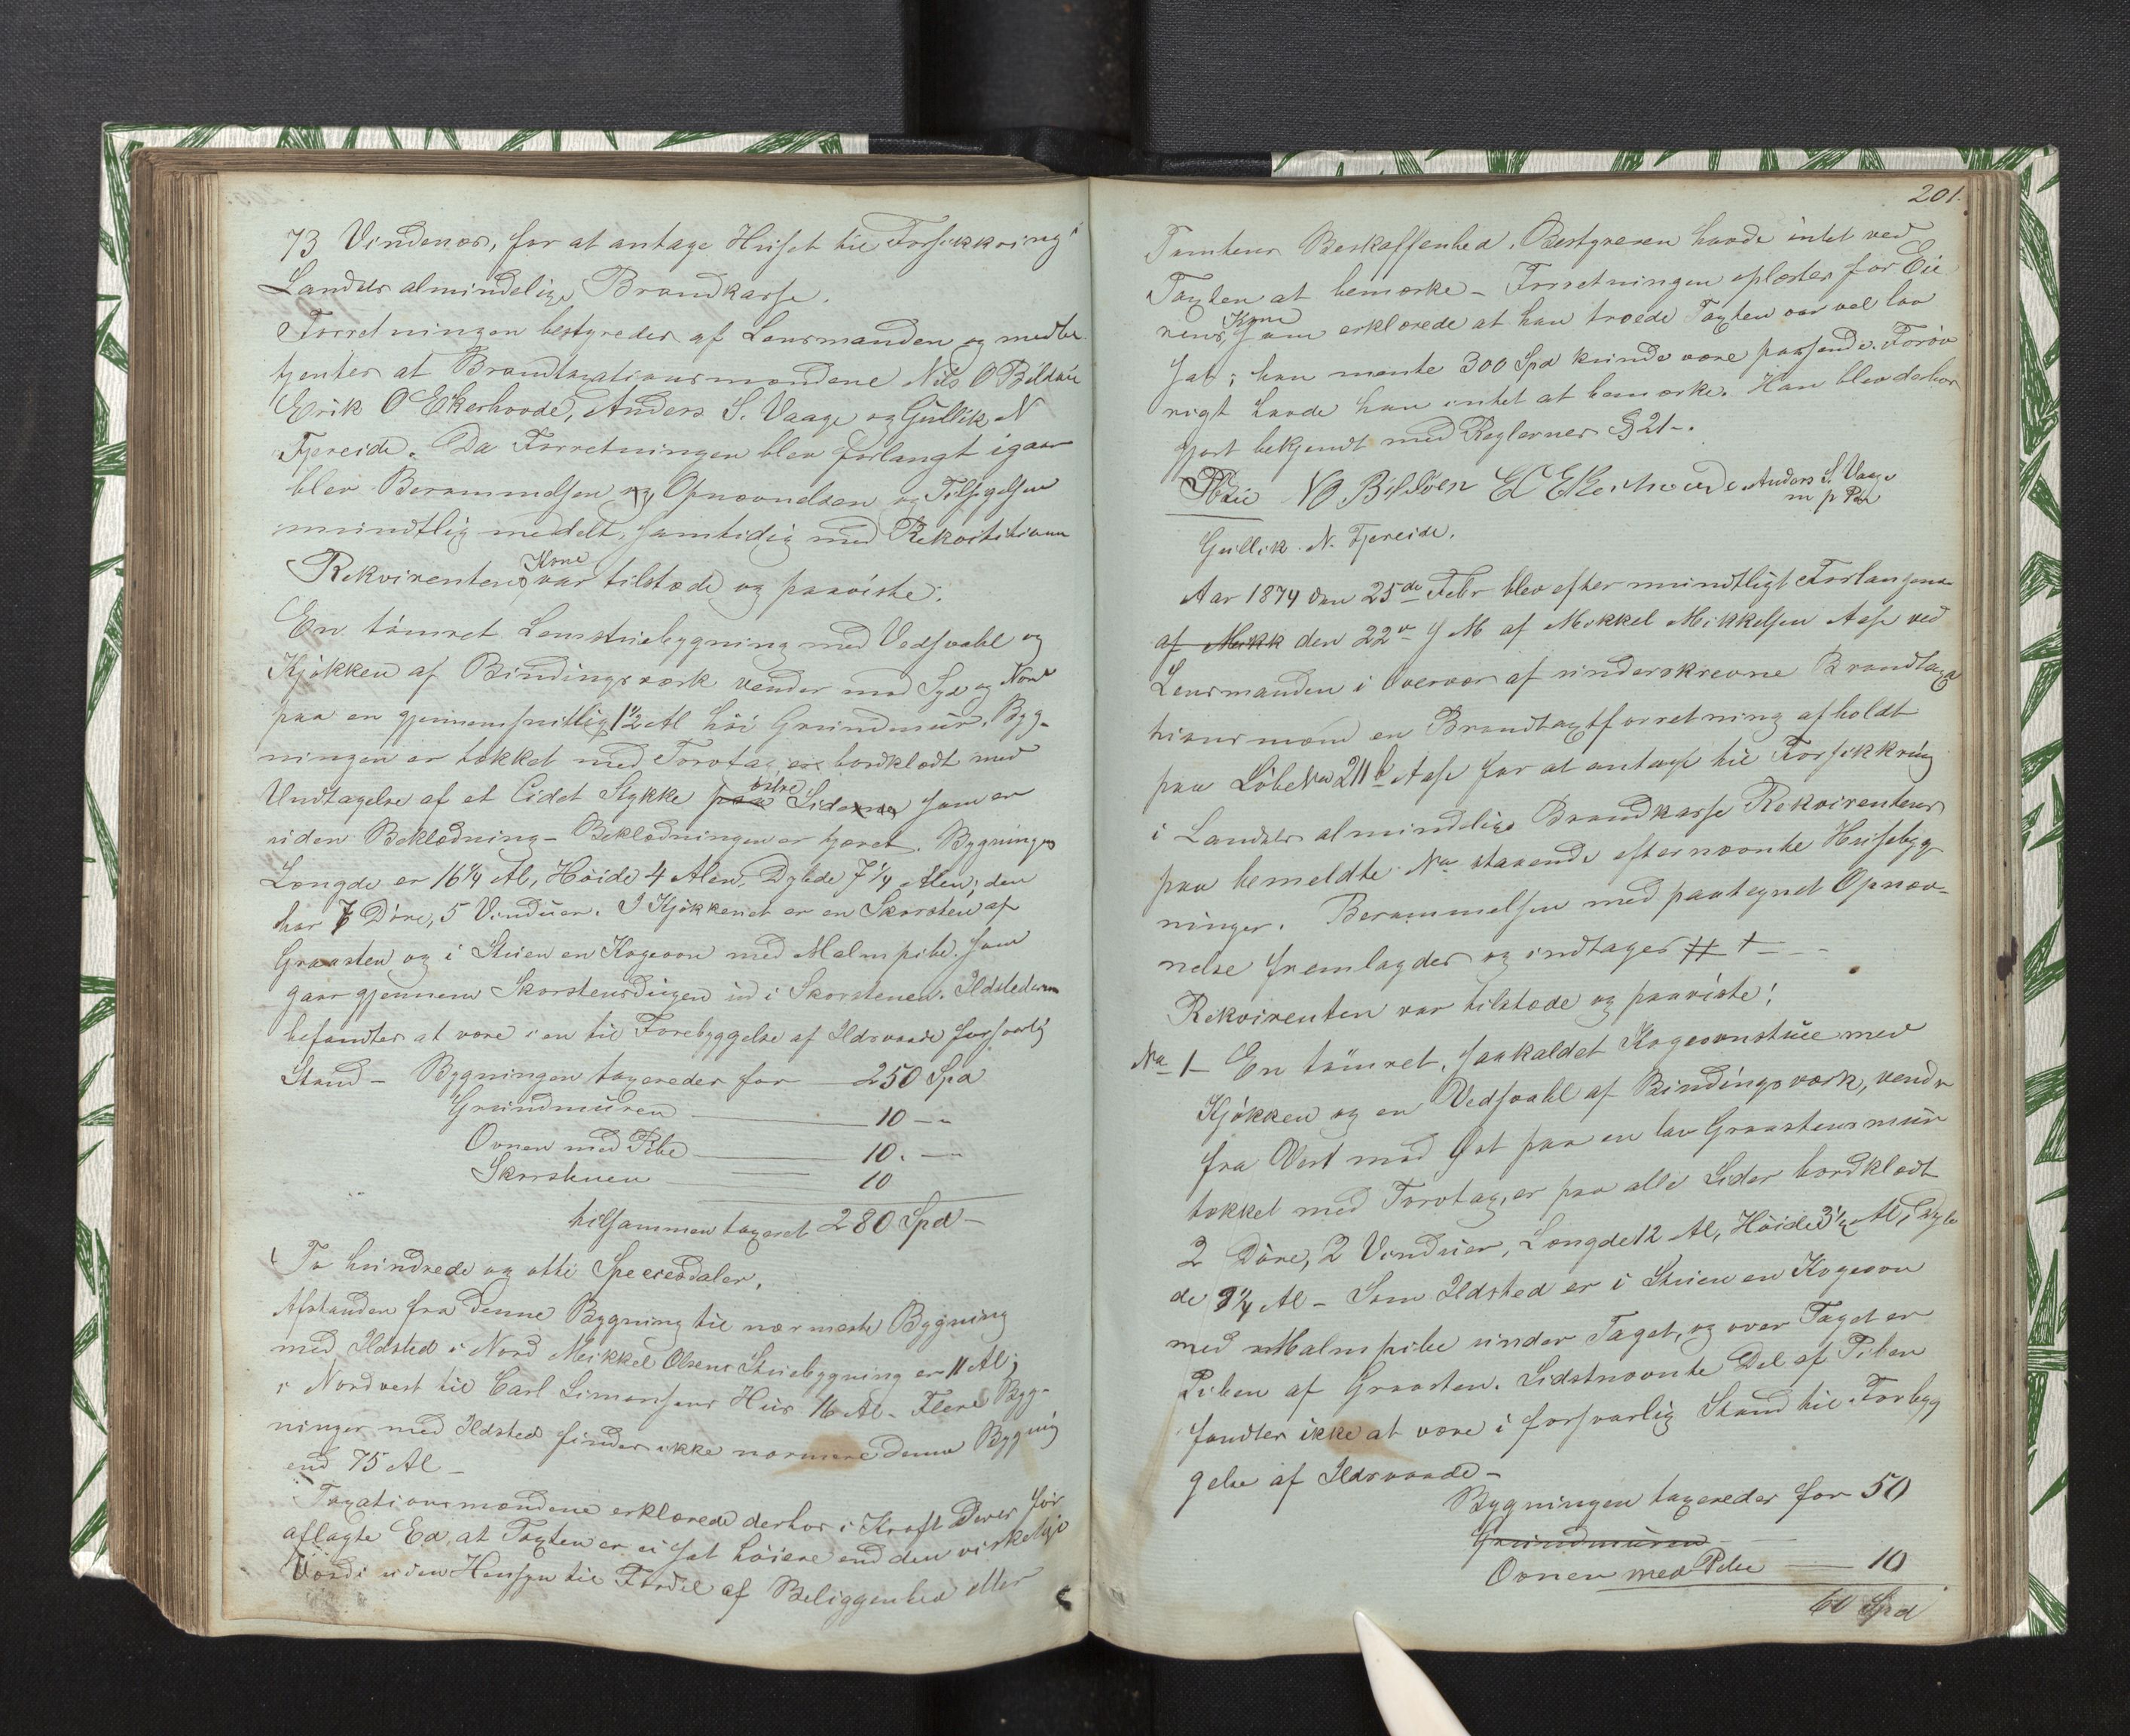 73 Vindenes, for at antage Huset til Forsikkring i
Landets almindelige Brandkasse.
Forretningen bestyredes af Lensmanden og medbe
tjentes at Brandtaxationsmændene Nils O Bildöen
Erik O Ekerhovde, Anders S. Vaage og Gullik N
Fjereide. Da Forretningen blev forlangt igaar
blev Berammelsen og Opnævnelsen og Tilsigelsen
mundtlig meddelt, samtidig med Rekvisitionen
Rekvirentens Kone var tilstede og paaviste:
En tömret Lemstuebygning med Vedsvahl og
Kjökken af Bindingsværk vender mod Syd og Nord
paa en gjennemsnitlig 1 1/2 Al höi Grundmur. Byg-
ningen er tækket med Torvtag, er bordklædt med
Undtagelse af et Lidet Stykke paa östre Siderne som er
uden Beklædning - Beklædningen er tjæret. Bygningens
Længde er 16 1/4 Al, Höide 4 Alen, Dybde 7 1/4 Alen; den
har 7 Döre, 5 Vinduer. I Kjökkenet er en Skorsten af
Graasten og i Stuen en Kogeovn med Malmpibe som
gaar gjennem Skorstensvæggen ud i Skorstenen. Ildstederne
befandtes at være i en til Forebyggelse af Ildsvaade forsvarlig
Stand - Bygningen taxeredes for 250 Spd
Grundmuren 10 -"-
Ovnen med Pibe 10. -"-
Skorstenen 10
tilsammen taxeret 280 Spd -
To hundrede og otti Speciesdaler.
Afstanden fra denne Bygning til nærmeste Bygning
med Ildsted i Nord Mikkel Olsens Stuebygning er 11 Al;
i Nordvest til Carl Simonsens Hus 16 Al. Flere Byg-
ninger med Ildsted findes ikke nærmere denne Bygning
end 75 Al -
Taxationsmændene erklærede derhos i Kraft deres för
aflagte Ed, at Taxten er ei sat höiere end den virkelige
Værdi uden Hensyn til Fordel af Beliggenhed eller
201.
Tomtens Beskaffenhed. Bestyreren havde intet ved
Taxten at bemærke - Forretningen oplæstes for Eie
rens Kone som erklærede at hun troede Taxten var vel lav
sat; hun mente 300 Spd kunde være passende. Foröv
rigt havde hun intet at bemærke. Han blev derhos
gjort bekjendt med Reglernes § 21 -.
N O. Bildöen E O Ekerhovde Anders S. Vaage
m p Pen
Gullik. N. Fjereide.
Aar 1874 den 25de Febr blev efter mundtligt Forlangende
af Mikk den 22de d M af Mikkel Mikkelsen Aase ved
Lensmanden i Overvær af underskrevne Brandtaxa
tionsmænd en Brandtaxtforretning afholdt
paa Löbe No 211 b Aase for at antage til Forsikkring
i Landets almindelige Brandkasse Rekvirentens
paa bemeldte No staaende efternævnte Husebyg
ninger. Berammelsen med paategnet Opnæv-
nelse fremlagdes og indtages # † -
Rekvirenten var tilstede og paaviste:
No 1 - En tömret, saakaldet Kogeovnstue med
Kjökken og en Vedsvahl af Bindingsværk, vender
fra Vest mod Öst paa en lav Graastensmur
tækket med Torvtag, er paa alle Sider bordklædt
2 Döre, 2 Vinduer, Længde 12 Al, Höide 3 1/2 Al, Dyb
de 9 1/4 Al - Som Ildsted er i Stuen en Kogeovn
med Malmpibe under Taget, og over Taget er
Piben af Graasten. Sidstnævnte Del af Piben
fandtes ikke at være i forsvarlig Stand til Forbyg
gelse af Ildsvaade -
Bygningen taxeredes for 50
Grundmuren
Ovnen med Pibe 10
60 Spd